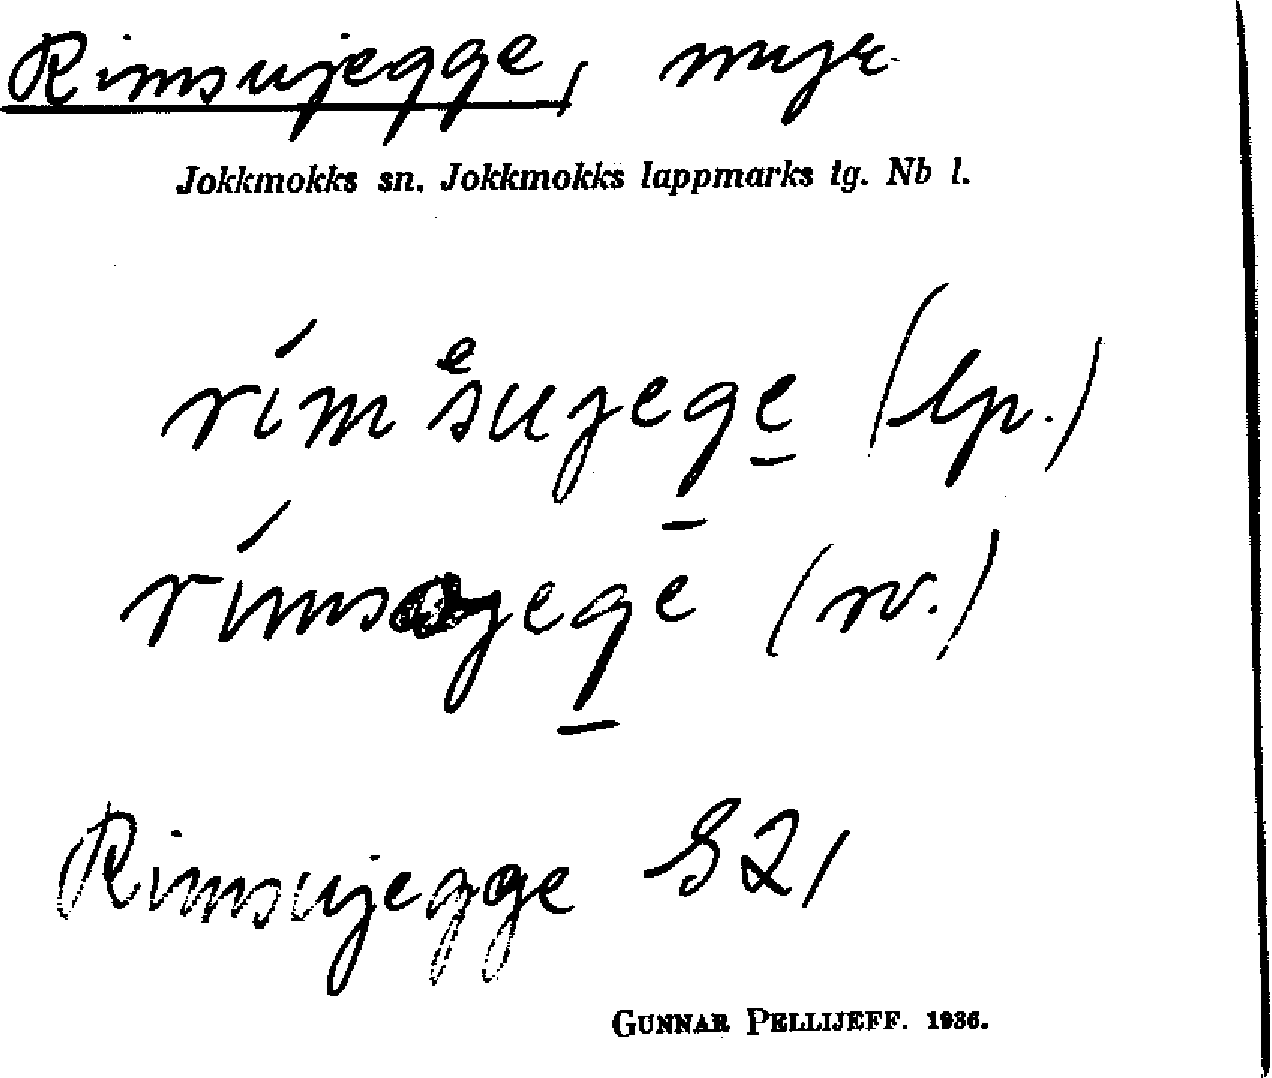 Rimsujegge, myr
Jokkmokks sn. Jokkmokks lappmarks tg. Nb l.
rímsujege (lp.)
(sv.)
Rimsujegge S21
GUNNAR PELLIJEFF. 1936.